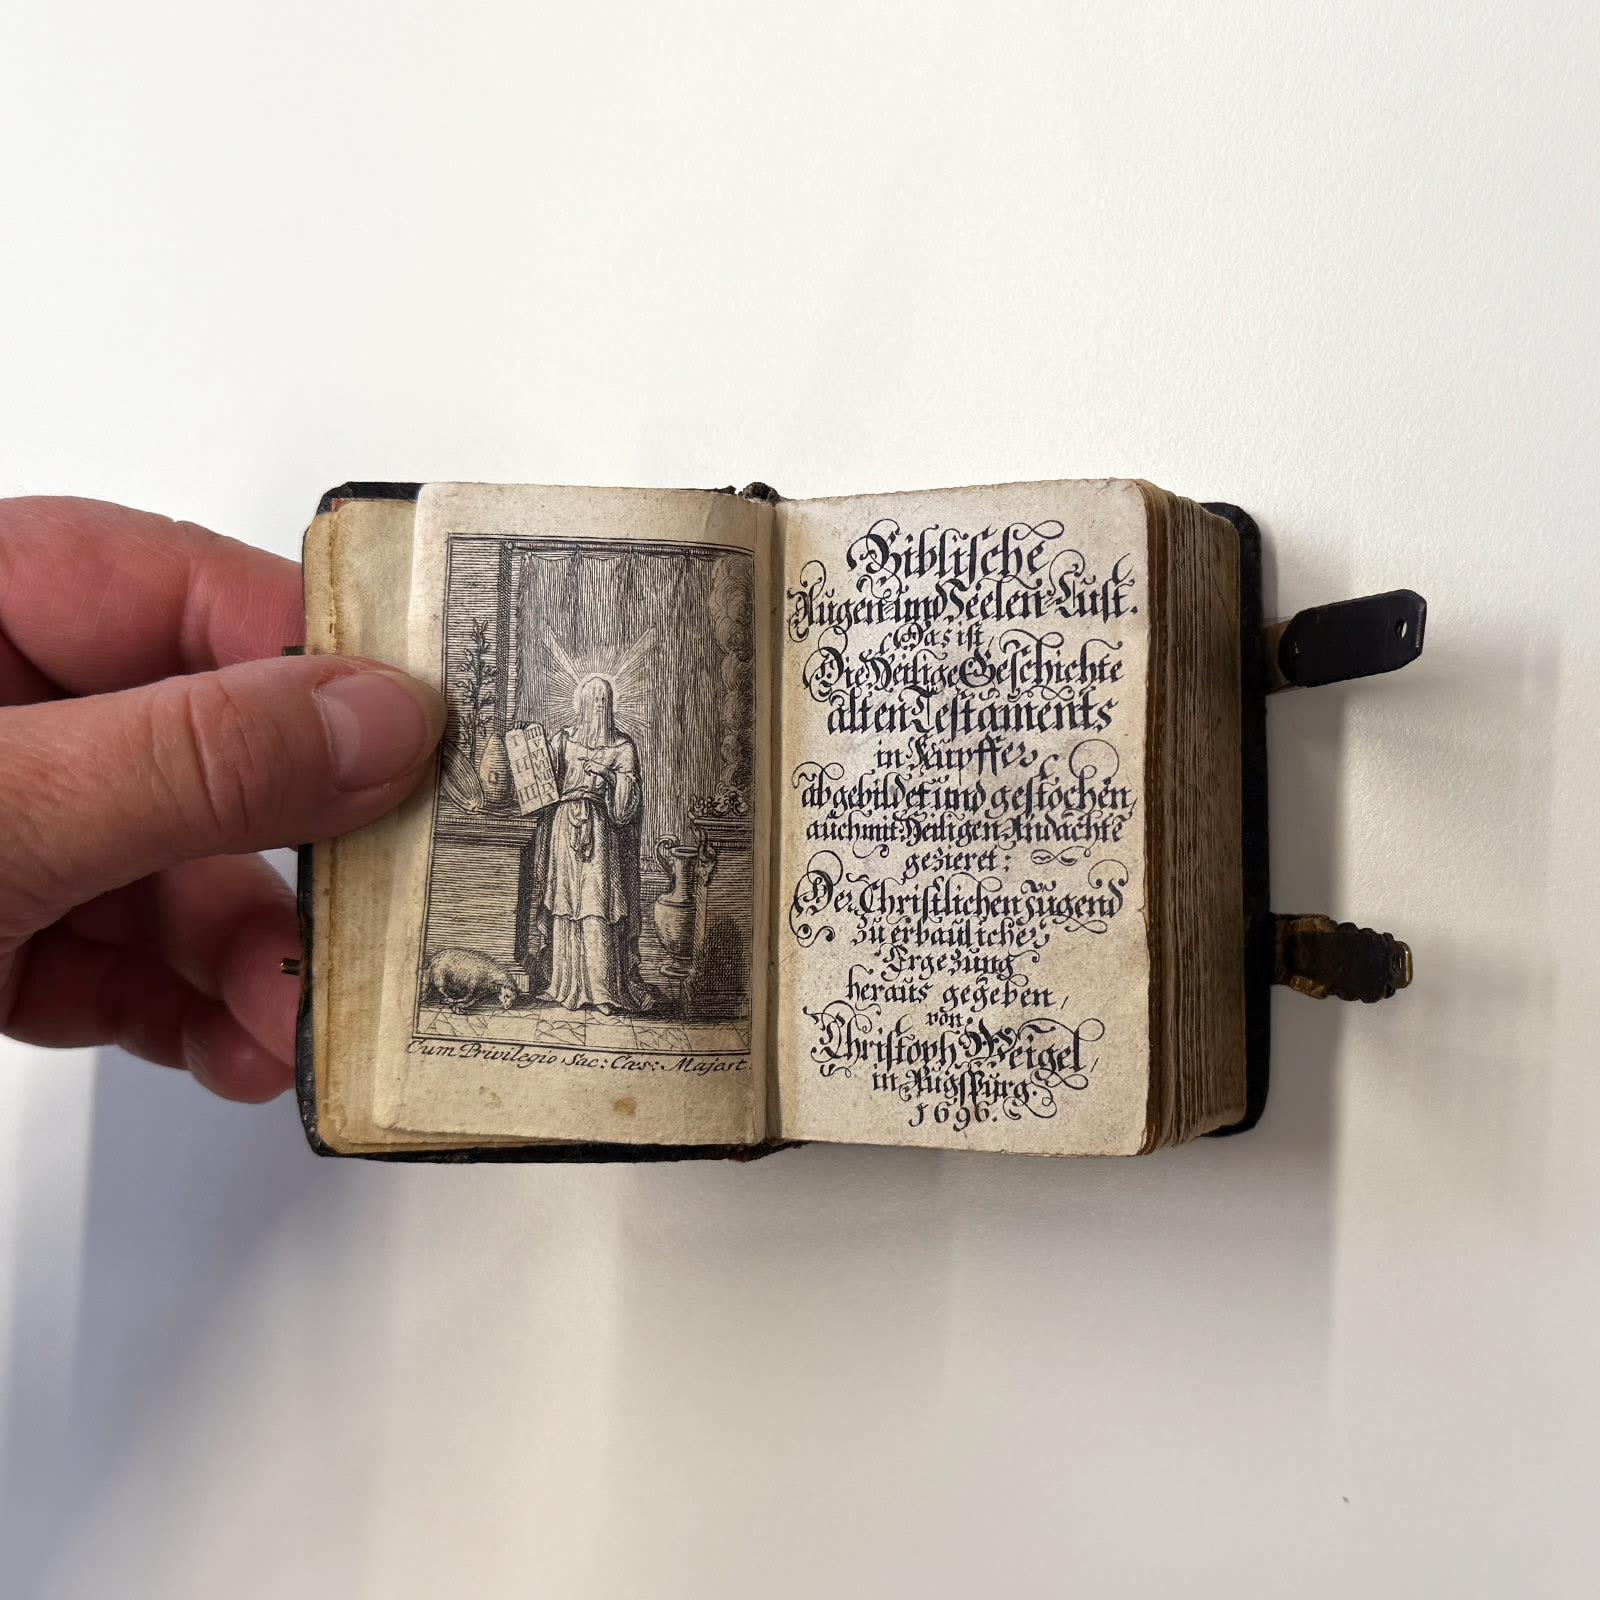 I
II
III
IIII
V
Cum Privilegio Sac: Cæs: Majast.
Biblische
Augen und Seelen-Lust.
Das ist
Die Heilige Geschichte
alten Testaments
in Kupffer
abgebildet und gestochen,
auch mit Heiligen Andachtē
gezieret:
Der Christlichen Jugend
zu erbaulicher
Ergezung
heraus gegeben,
von
Christoph Weigel,
in Augspurg.
1696.